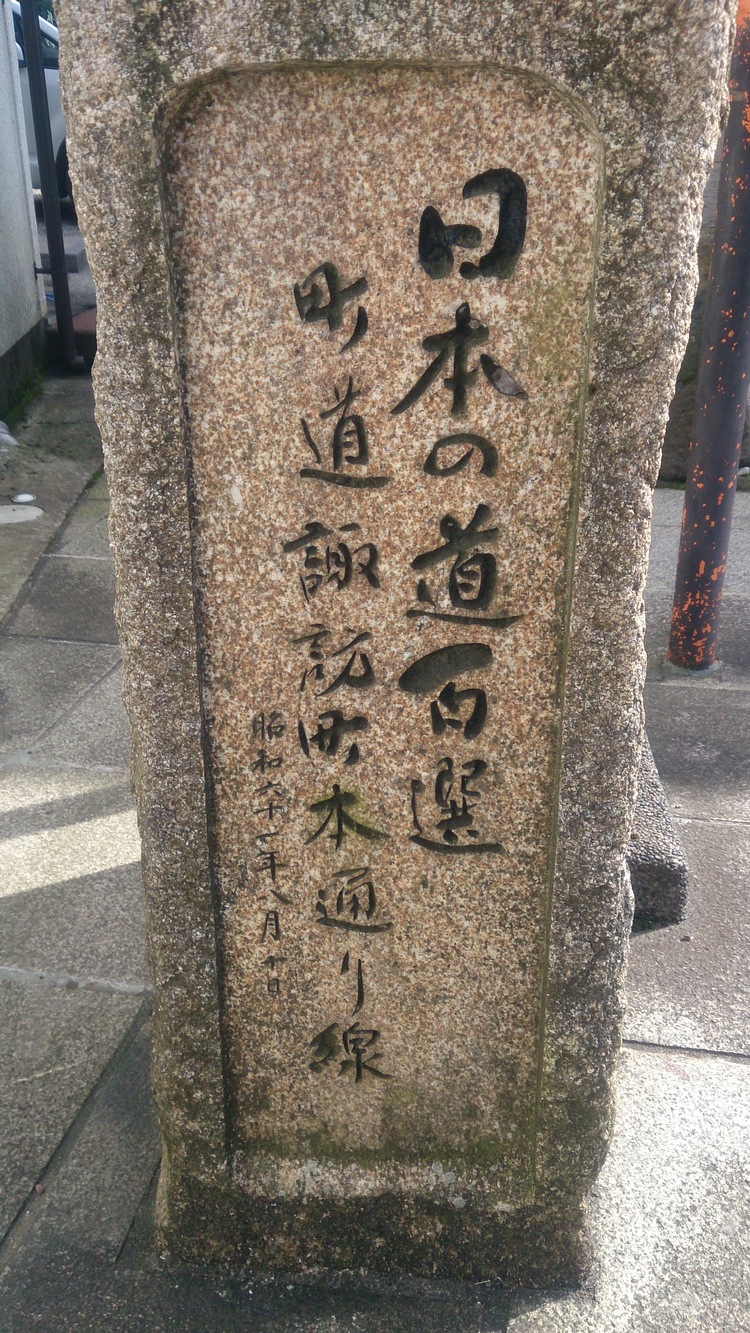 日本の道百選
町道諏訪町本通り線
昭和六十二年八月十日